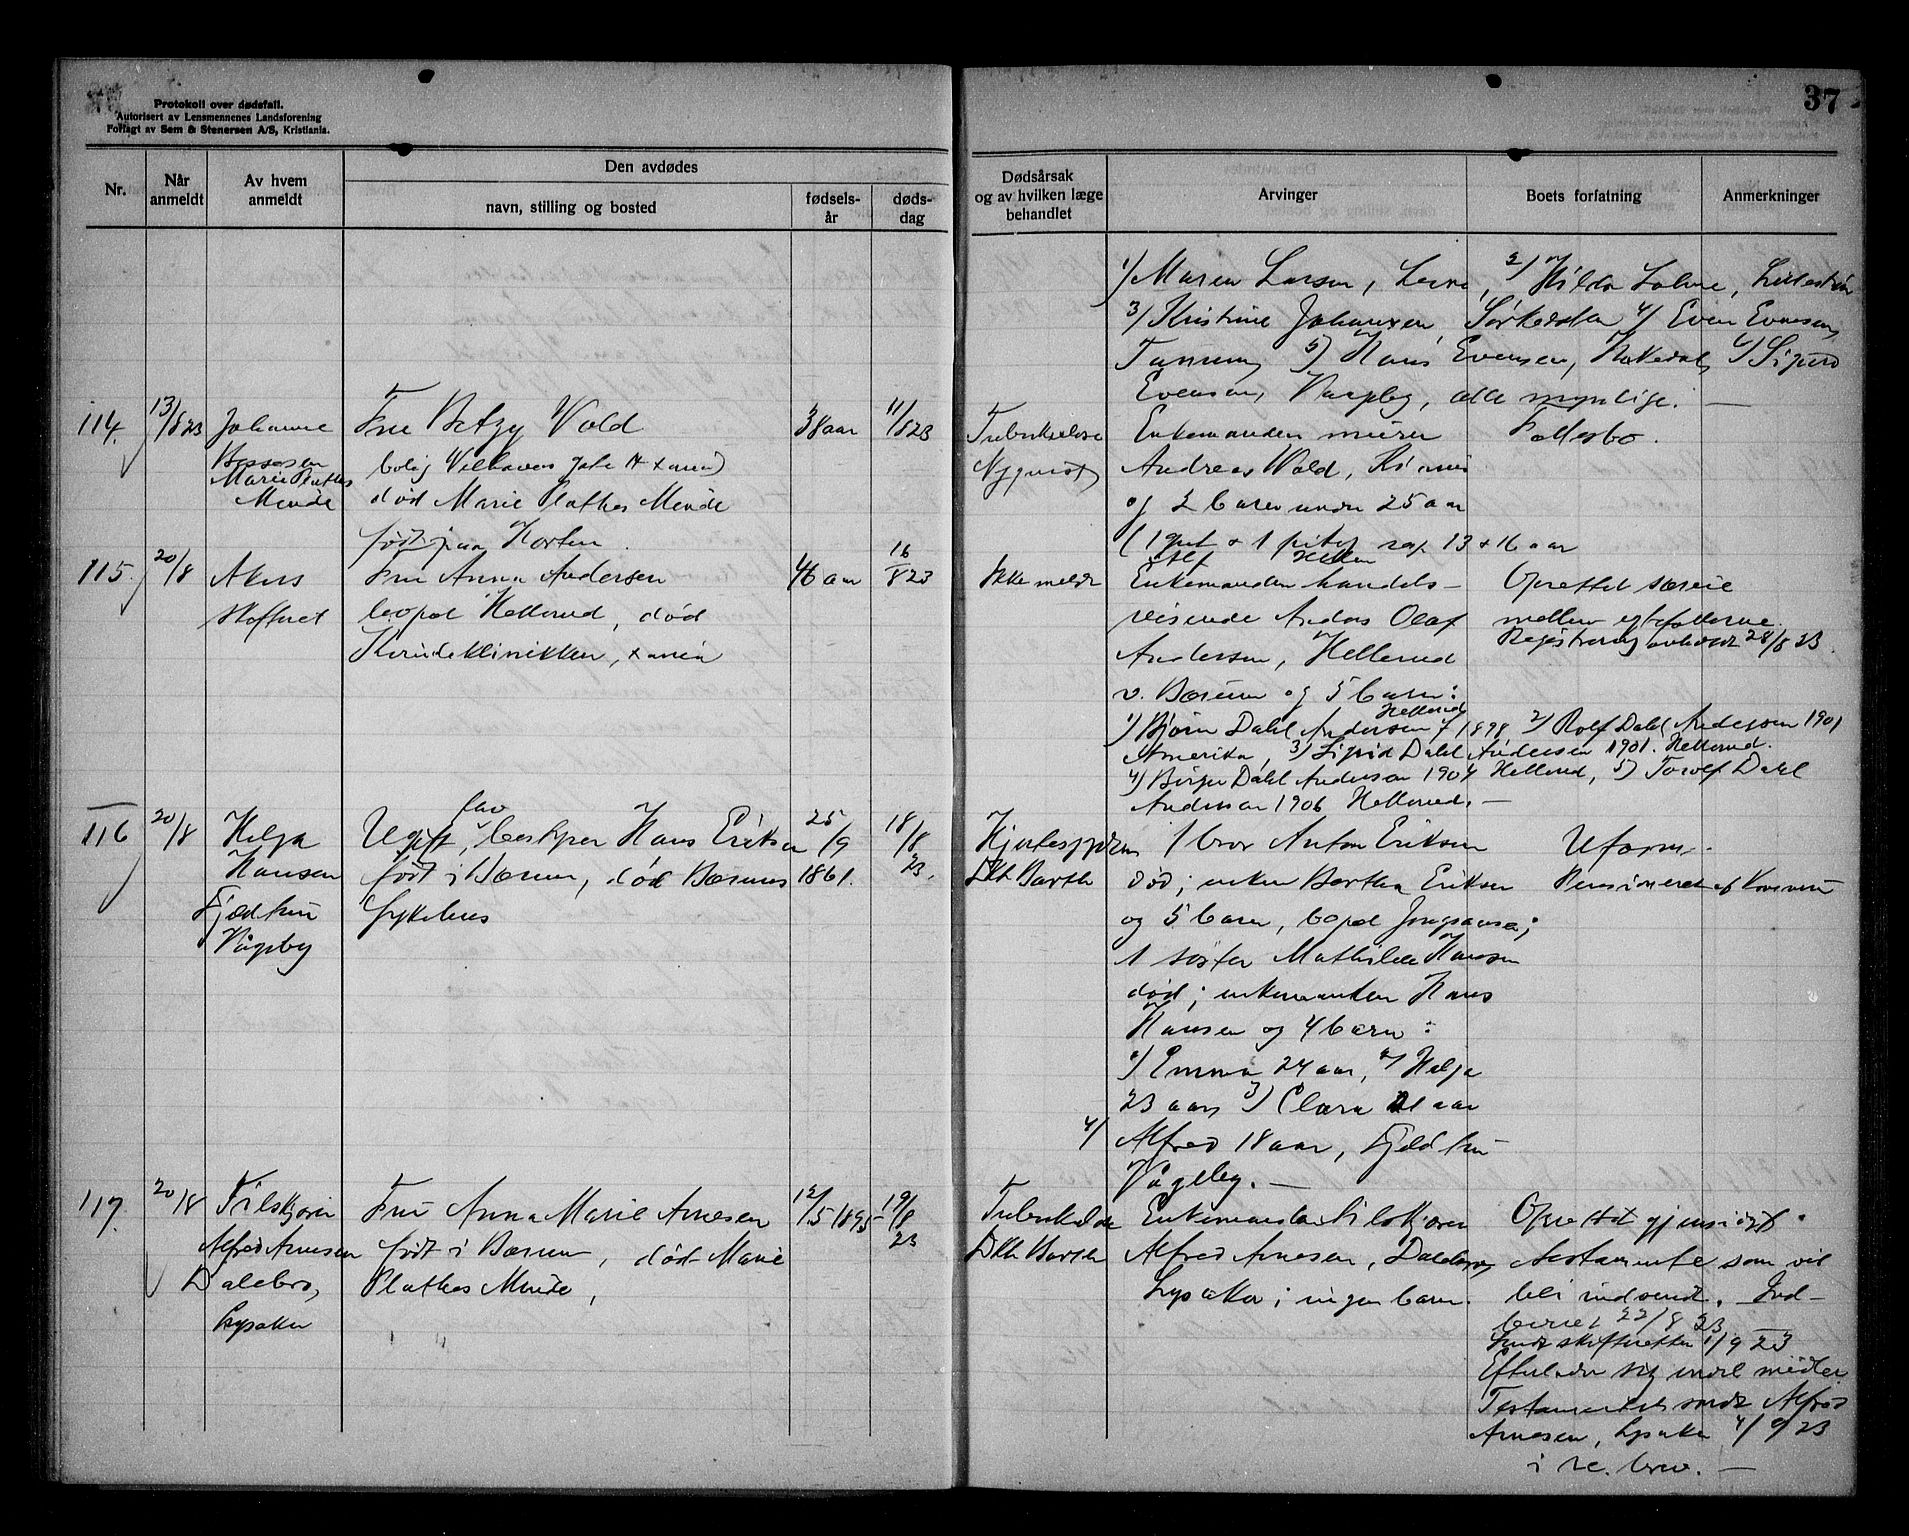 Protokoll over dødsfall.
Autorisert av Lensmennenes Landsforening
Forlagt av Sem & Stenersen A/S, Kristiania.
37
Nr.
Når anmeldt
Av hvem anmeldt
Den avdødes
navn, stilling og bosted
fødselsår
dødsdag
Dødsårsak og av hvilken læge behandlet
Arvinger
Boets forfatning
Anmerkninger
1) Maren Larsen, 2) Hilda
3) Kristine Johansen Sørkedalen 4) Even Evensen
Tanum 5) Hans Evensen, 6) Sigurd
Evensen, alle myndige. —
114.
13/8 23
Johanne
Marie Plathes
Minde
Fru Betzy Wold
bolig Welhavens gate xania
død Marie Plathes Minde
født paa Horten.
38 aar
11/8 23
Tuberkulose
Nyquist
Enkemanden murer
Andreas Wold,
og 2 barn under 25 aar
(1 gut + 1 pike 13 + 16 aar
Fællesbo.
115.
20/8
Akers
skifteret
Fru Anna Andersen
bopæl Hellerud, død
Kvindeklinikken, xania
46 aar
16/8 23
Ikke meldt
Enkemanden handels-
reisende Olaf
Andersen, Hellerud
v. Bærum og 5 barn:
1) Bjørn Dahl Andersen f 1898 Hellerud 2) Rolf Dahl Andersen 1901
Amerika, 3) Sigrid Dahl Andersen 1901. Hellerud.
4) Birger Dahl Andersen 1904 Hellerud, 5) Torolf Dahl
Andersen 1906 Hellerud. —
Oprettet særeie
mellem egtefællerne.
Registrering avholdt 28/8 23.
116
20/8
Helga
Hansen
Fjeldhus
Ugift, Hans Eriksen
født i Bærum, død Bærums
sykehus
25/9
1861.
18/8
23.
Dr Barth
1 bror Anton Eriksen
død; enken Bertha Eriksen
og 5 barn, bopæl
1 søster Mathilde Hansen
død; enkemanden Hans
Hansen og 4 barn:
1) Emma 24 aar, 2) Helga
23 aar, 3) Clara 21 aar
4) Alfred 18 aar,
Uform.
Pensioneret af
117.
20/8
Filskjærer
Alfred Arnesen
Dalebro,
Lysaker
Fru Anna Marie Arnesen
født i Bærum, død Marie
Plathes Minde,
12/5 1895
19/8
23
Tuberkulose
Dr Barth
Enkemanden filskjærer
Alfred Arnesen, Dalebro,
Lysaker; ingen barn.
Oprettet gjensidigt
testamente som vil
bli indsendt. Ind-
beret 22/8 23
Sendt skifteretten 1/9 23
Efterlader sig midler
Testamentet sendt Alfred
Arnesen, Lysaker 4/9 23
i rec. brev. —